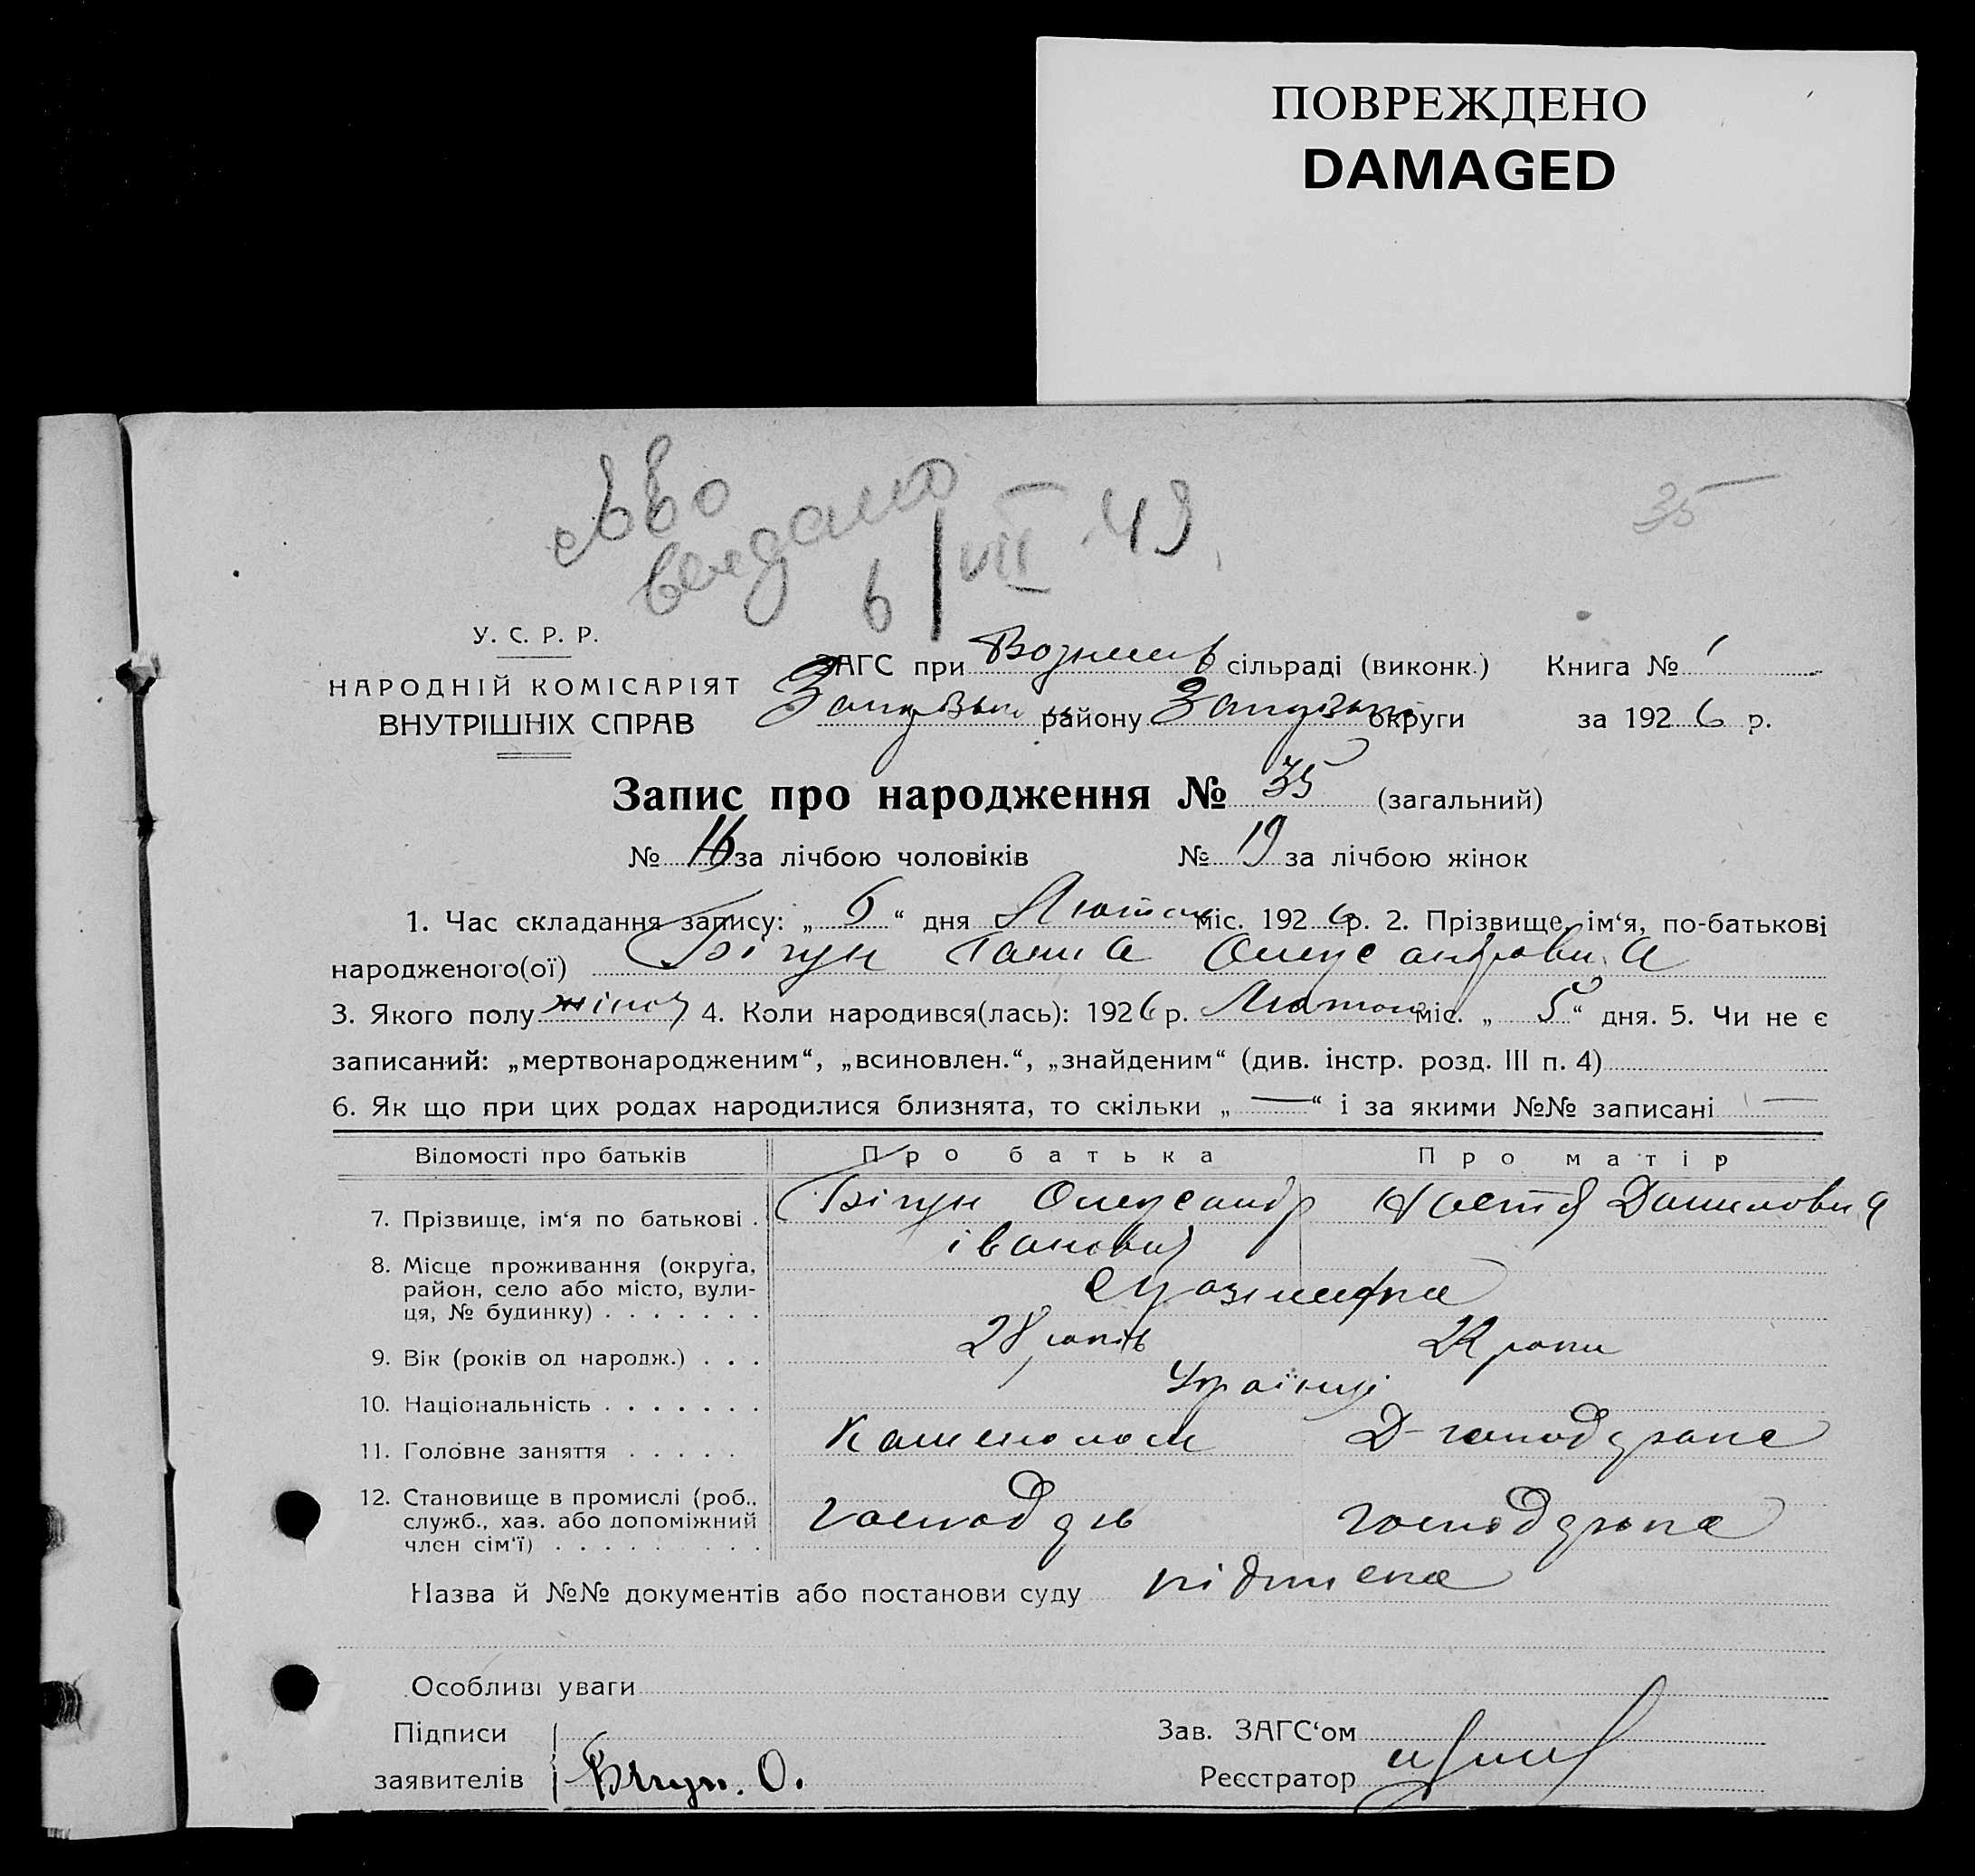 ПОВРЕЖДЕНО
DAMAGED
св-во
видано
6/VII 49
35
У. С. Р. Р.
НАРОДНІЙ КОМІСАРІЯТ
ВНУТРІШНІХ СПРАВ
ЗАГС при сільраді (виконк.) Книга № 1
району округи за 1926 р.
Запис про народження № 35 (загальний)
№ 16 за лічбою чоловіків № 19 за лічбою жінок
1. Час складання запису: „6“ дня Лютого міс. 1926 р. 2. Прізвище, ім‘я, по-батькові
народженого(ої) Бігун Ганна Олександровна
3. Якого полу жіноч 4. Коли народився(лась): 1926 р. Лютого міс. „5“ дня. 5. Чи не є
записаний: „мертвонародженим“, „всиновлен.“, „знайденим“ (див. інстр. розд. III п. 4)
6. Як що при цих родах народилися близнята, то скільки „—“ і за якими №№ записані —
Відомості про батьків Про батька Про матір
7. Прізвище, ім‘я по батькові . Бігун Олександр Настя Даниловна
іванович
8. Місце проживання (округа,
район, село або місто, вули-
ця, № будинку) . . . . . . .
9. Вік (років од народж.) . . . 28 років 24 роки
10. Національність . . . . . . . Українці
11. Головне заняття . . . . . Каменолом Д-господарка
12. Становище в промислі (роб.,
служб., хаз. або допоміжний господарь господарка
член сім‘ї) . . . . . . . . .
Назва й №№ документів або постанови суду підписка
Особливі уваги
Підписи Зав. ЗАГС‘ом
заявителів Бігун. О. Реєстратор